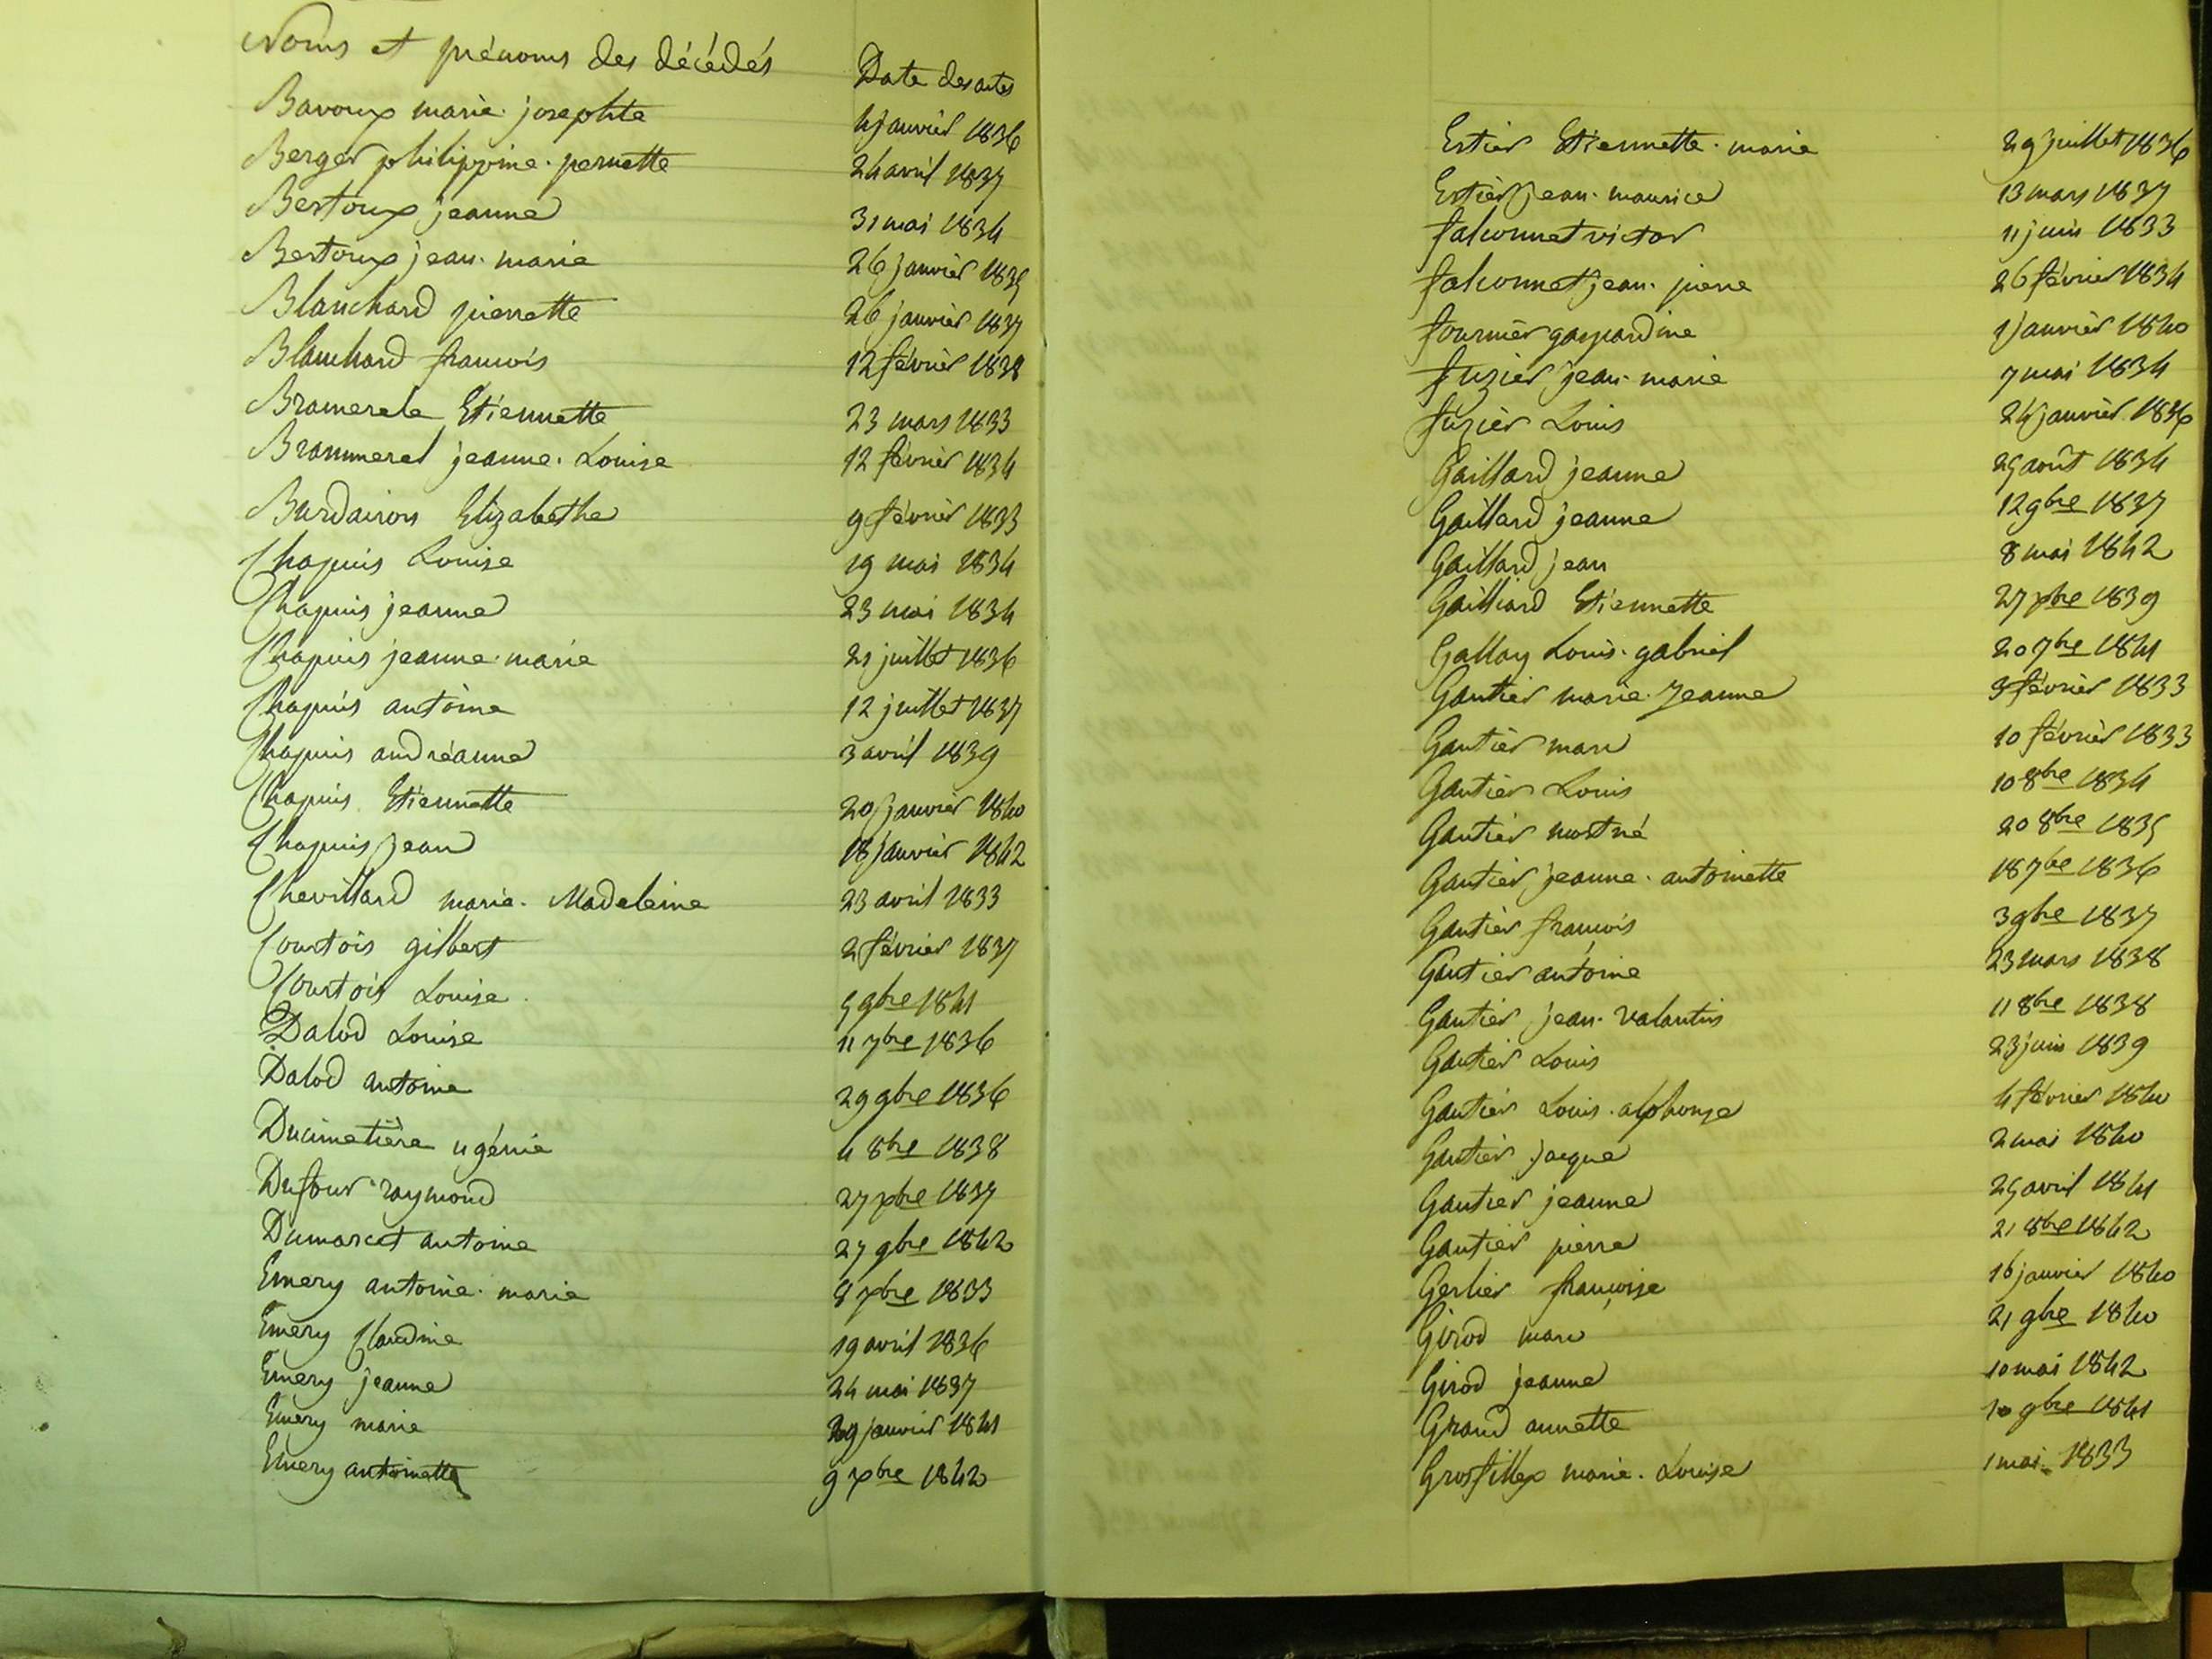 Noms et prénoms des décédés Date des actes
Bavoux marie josephte 4 janvier 1836
Berger philippine pernette 24 avril 1837
Bertoux jeanne 31 mai 1834
Bertoux jean marie 26 janvier 1835
Blanchard pierrette 26 janvier 1837
Blanchard francois 12 février 1838
Bramerele Etiennette 23 mars 1833
Brammerel jeanne Louise 12 février 1834
Burdairon Elizabethe 9 février 1833
Chapuis Louise 19 mai 1834
Chapuis jeanne 23 mai 1834
Chapuis jeanne marie 21 juillet 1836
Chapuis antoine 12 juillet 1837
Chapuis andréanne 3 avril 1839
Chapuis Etiennette 20 janvier 1840
Chapuis jean 18 janvier 1842
Chevillard marie Madeleine 23 avril 1833
Courtois gilbert 2 février 1837
Courtois Louise 5 9bre 1841
Dalod Louise 11 7bre 1836
Dalod antoine 29 9bre 1836
Ducimetière ugénie 4 8bre 1838
Dufour raymond 27 xbre 1837
Dumarcet antoine 27 9bre 1842
Emery antoine marie 8 xbre 1833
Emery Claudine 19 avril 1836
Emery jeanne 24 mai 1837
Emery marie 29 janvier 1841
Emery antoinette 9 xbre 1842
Estier Etiennette marie 29 juillet 1836
Estier jean maurice 13 mars 1837
falconnet victor 11 juin 1833
falconnet jean pierre 26 février 1834
fournier gaspardine 1 janvier 1840
fuzier jean marie 7 mai 1834
fuzier Louis 24 janvier 1836
Gaillard jeanne 25 août 1834
Gaillard jeanne 12 9bre 1837
Gaillard jean 8 mai 1842
Gailliard Etiennette 27 xbre 1839
Gallay Louis gabriel 20 7bre 1841
Gautier marie Jeanne 3 février 1833
Gautier marc 10 février 1833
Gautier Louis 10 8bre 1834
Gautier mort né 20 8bre 1835
Gautier jeanne antoinette 18 7bre 1836
Gautier francois 3 9bre 1837
Gautier antoine 23 mars 1838
Gautier jean valantin 11 8bre 1838
Gautier Louis 23 juin 1839
Gautier Louis alphonse 4 février 1840
Gautier Jacque 2 mai 1840
Gautier jeanne 25 avril 1841
Gautier pierre 21 8bre 1842
Gerlier françoise 16 janvier 1840
Girod marc 21 9bre 1840
Girod jeanne 10 mai 1842
Grand annette 10 9bre 1841
Grosfillex marie Louise 1 mai 1833